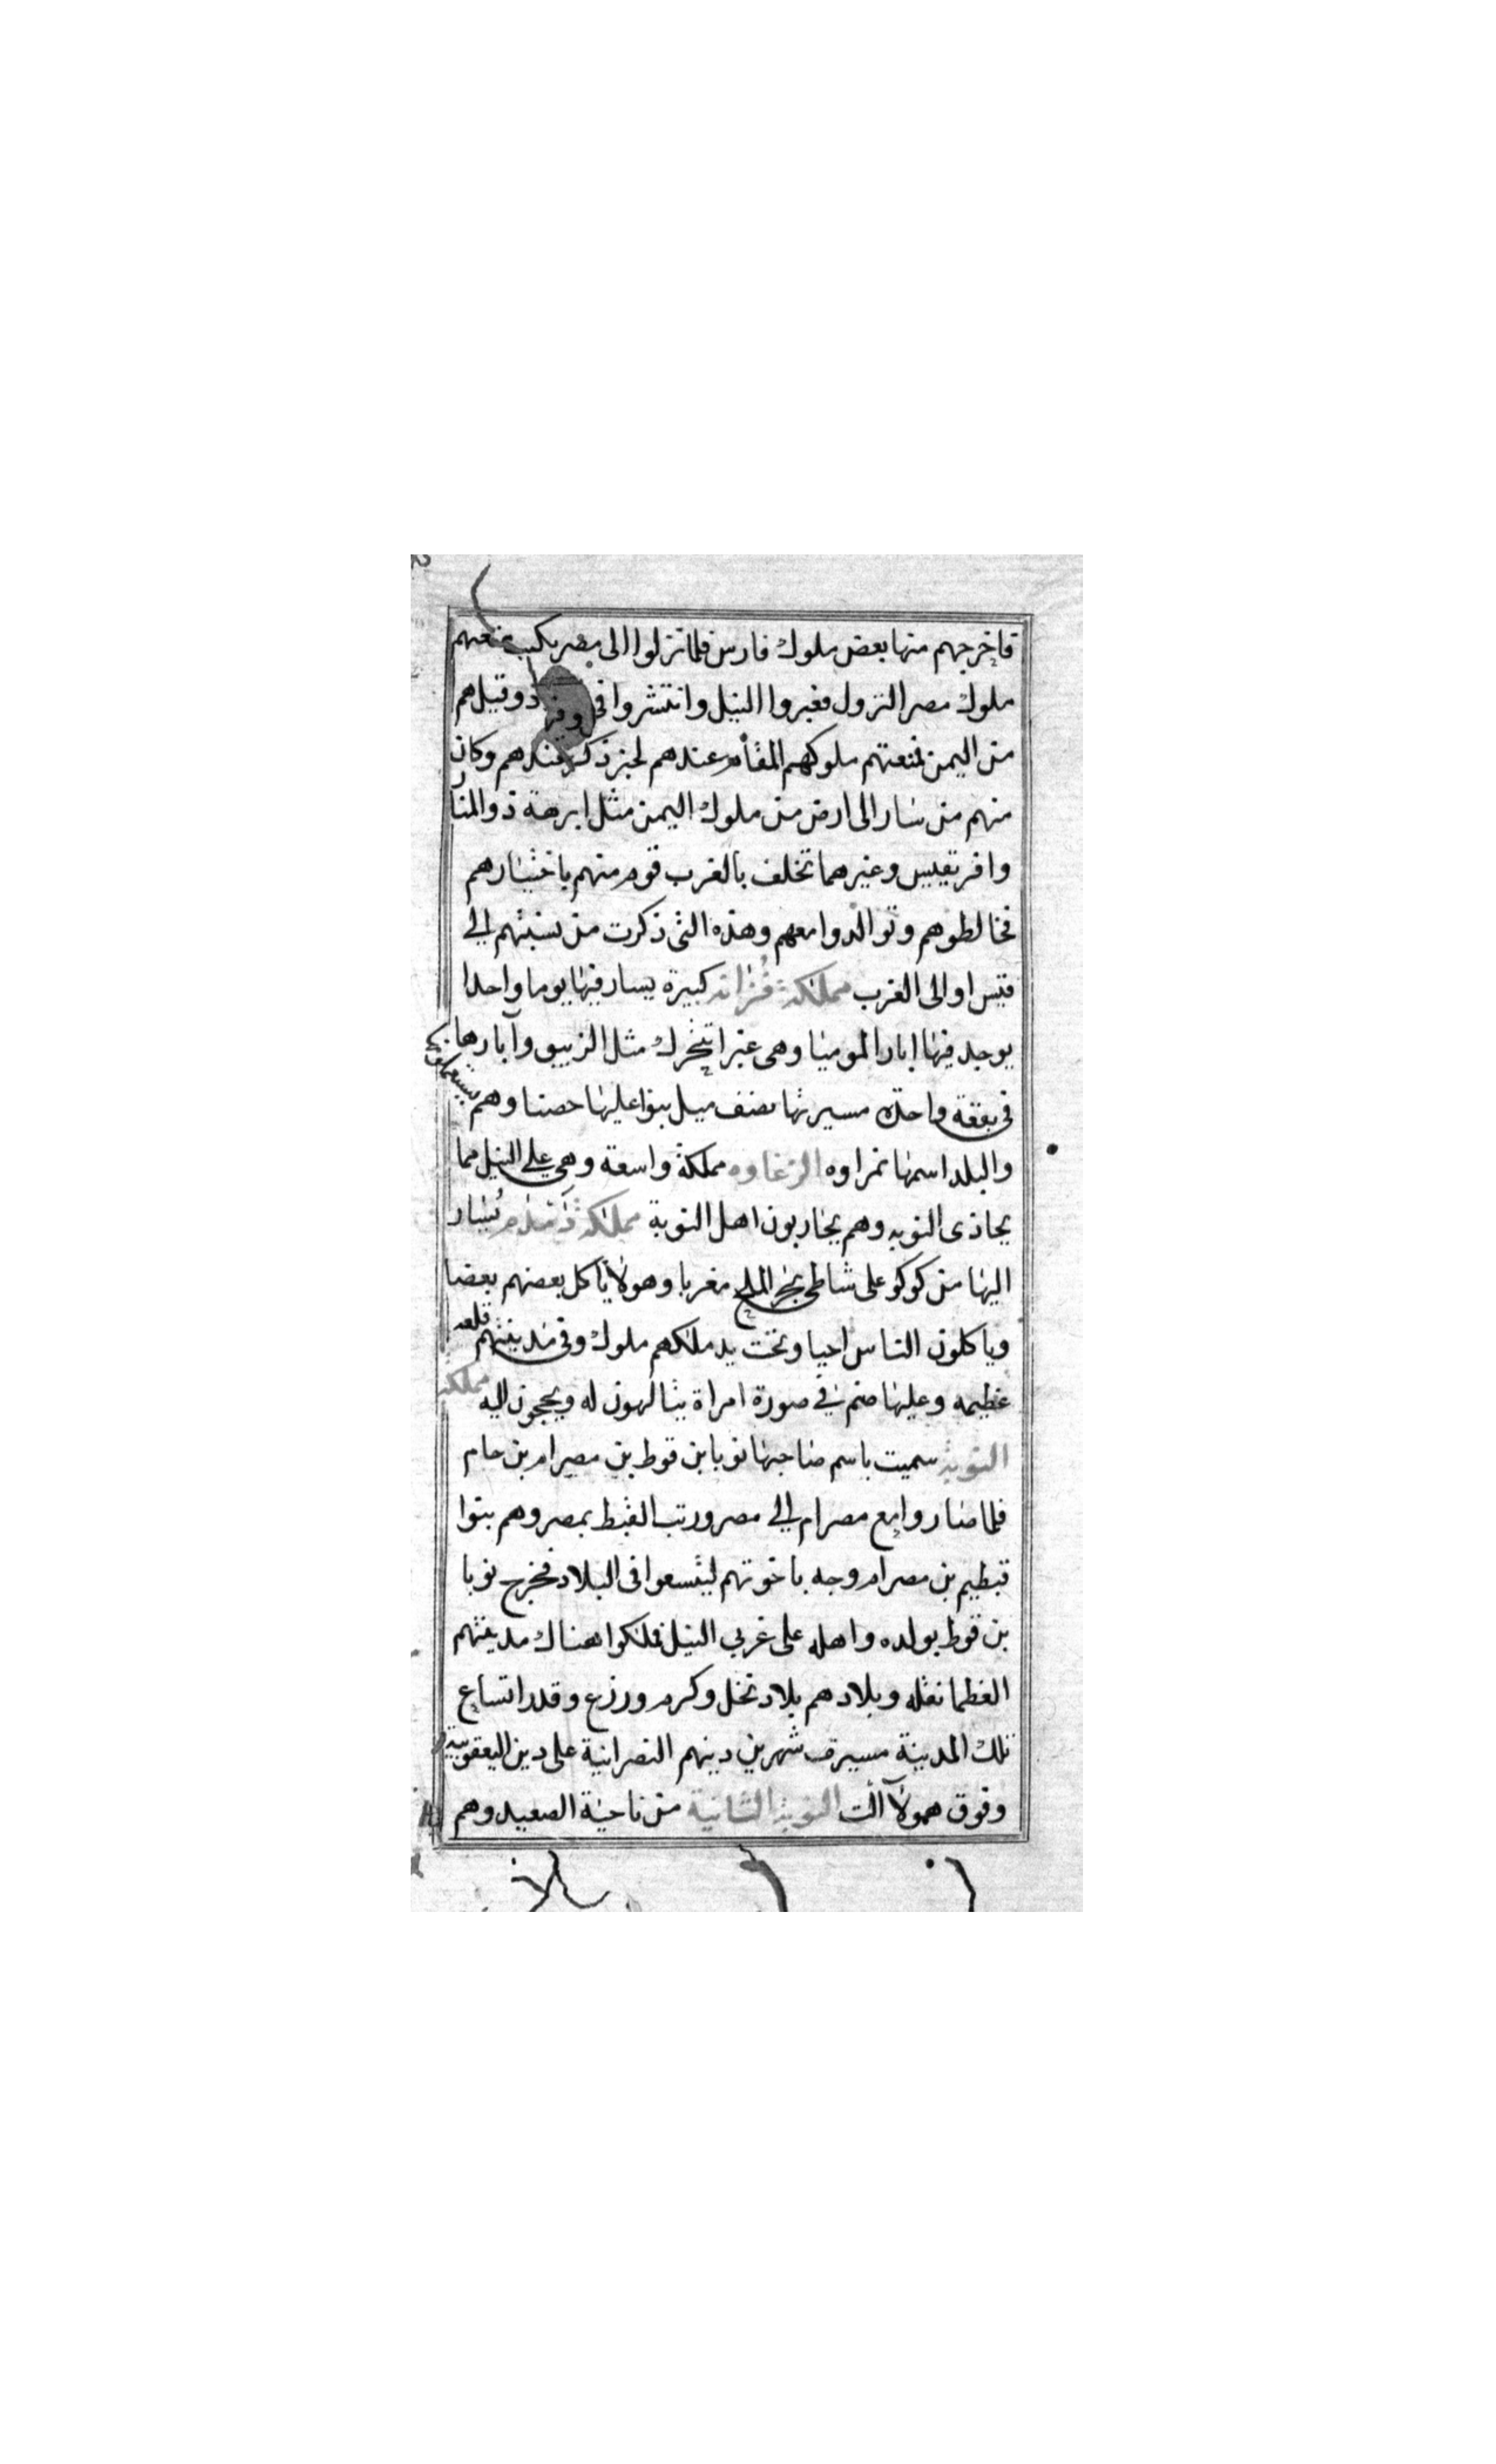 فاخرجهم منها بعض ملوك فارس فلما نزلوا الى مصر منعهم
ملوك مصر النزول فعبروا النيل وانتشروا في وقيل هم
من اليمن فمنعتهم ملوكهم المقام عندهم لخبر ذكر عندهم وكان
منهم من سار الى ارض من ملوك اليمن مثل ابرهة ذو المنار
وافريقيس وغيرهما تخلف بالغرب قوم منهم باختيارهم
فخالطوهم وتوالدوا معهم وهذه التى ذكرت من نسبتهم الي
قيس او الى الغرب مملكة فزانه كبيرة يسار فيها يوما واحدا
يوجد فيها ابار الموميا وهى عنبر اتتحرك مثل الزيبق وآبارها
فى بقعة واحدة مسيرتها نصف ميل بنوا عليها حصنا وهم
والبلد اسمها نمراوه الزغاوه مملكة واسعة وهى على النيل مما
يحاذى النوبه وهم يحاربون اهل النوبة مملكة يسار
اليها من كوكو على شاطى بحر الملح مغربا وهولا ياكل بعضهم بعضا
وياكلون الناس احيا وتحت يد ملكهم ملوك وفى مدينتهم قلعه
عظيمه وعليها صنم في صورة امراة يتالهون له ويحجون اليه مملكة
النوبة سميت باسم صاحبها نوبا بن قوط بن مصرام بن حام
فلما صاروا مع مصرام الي مصر ورتب القبط بمصر وهم بنوا
قبطيم بن مصرام وجه باخوتهم ليتسعوا فى البلاد فخرج نوبا
بن قوط بولده واهله على غربي النيل فملكوا هناك مدينتهم
العظما نقله وبلادهم بلاد نخل وكرم وزرع وقدر اتساع
تلك المدينة مسيرة شهرين دينهم النصرانية على دين اليعقوبية
وفوق هولآ الت النوبة الثانية من ناحية الصعيد وهم